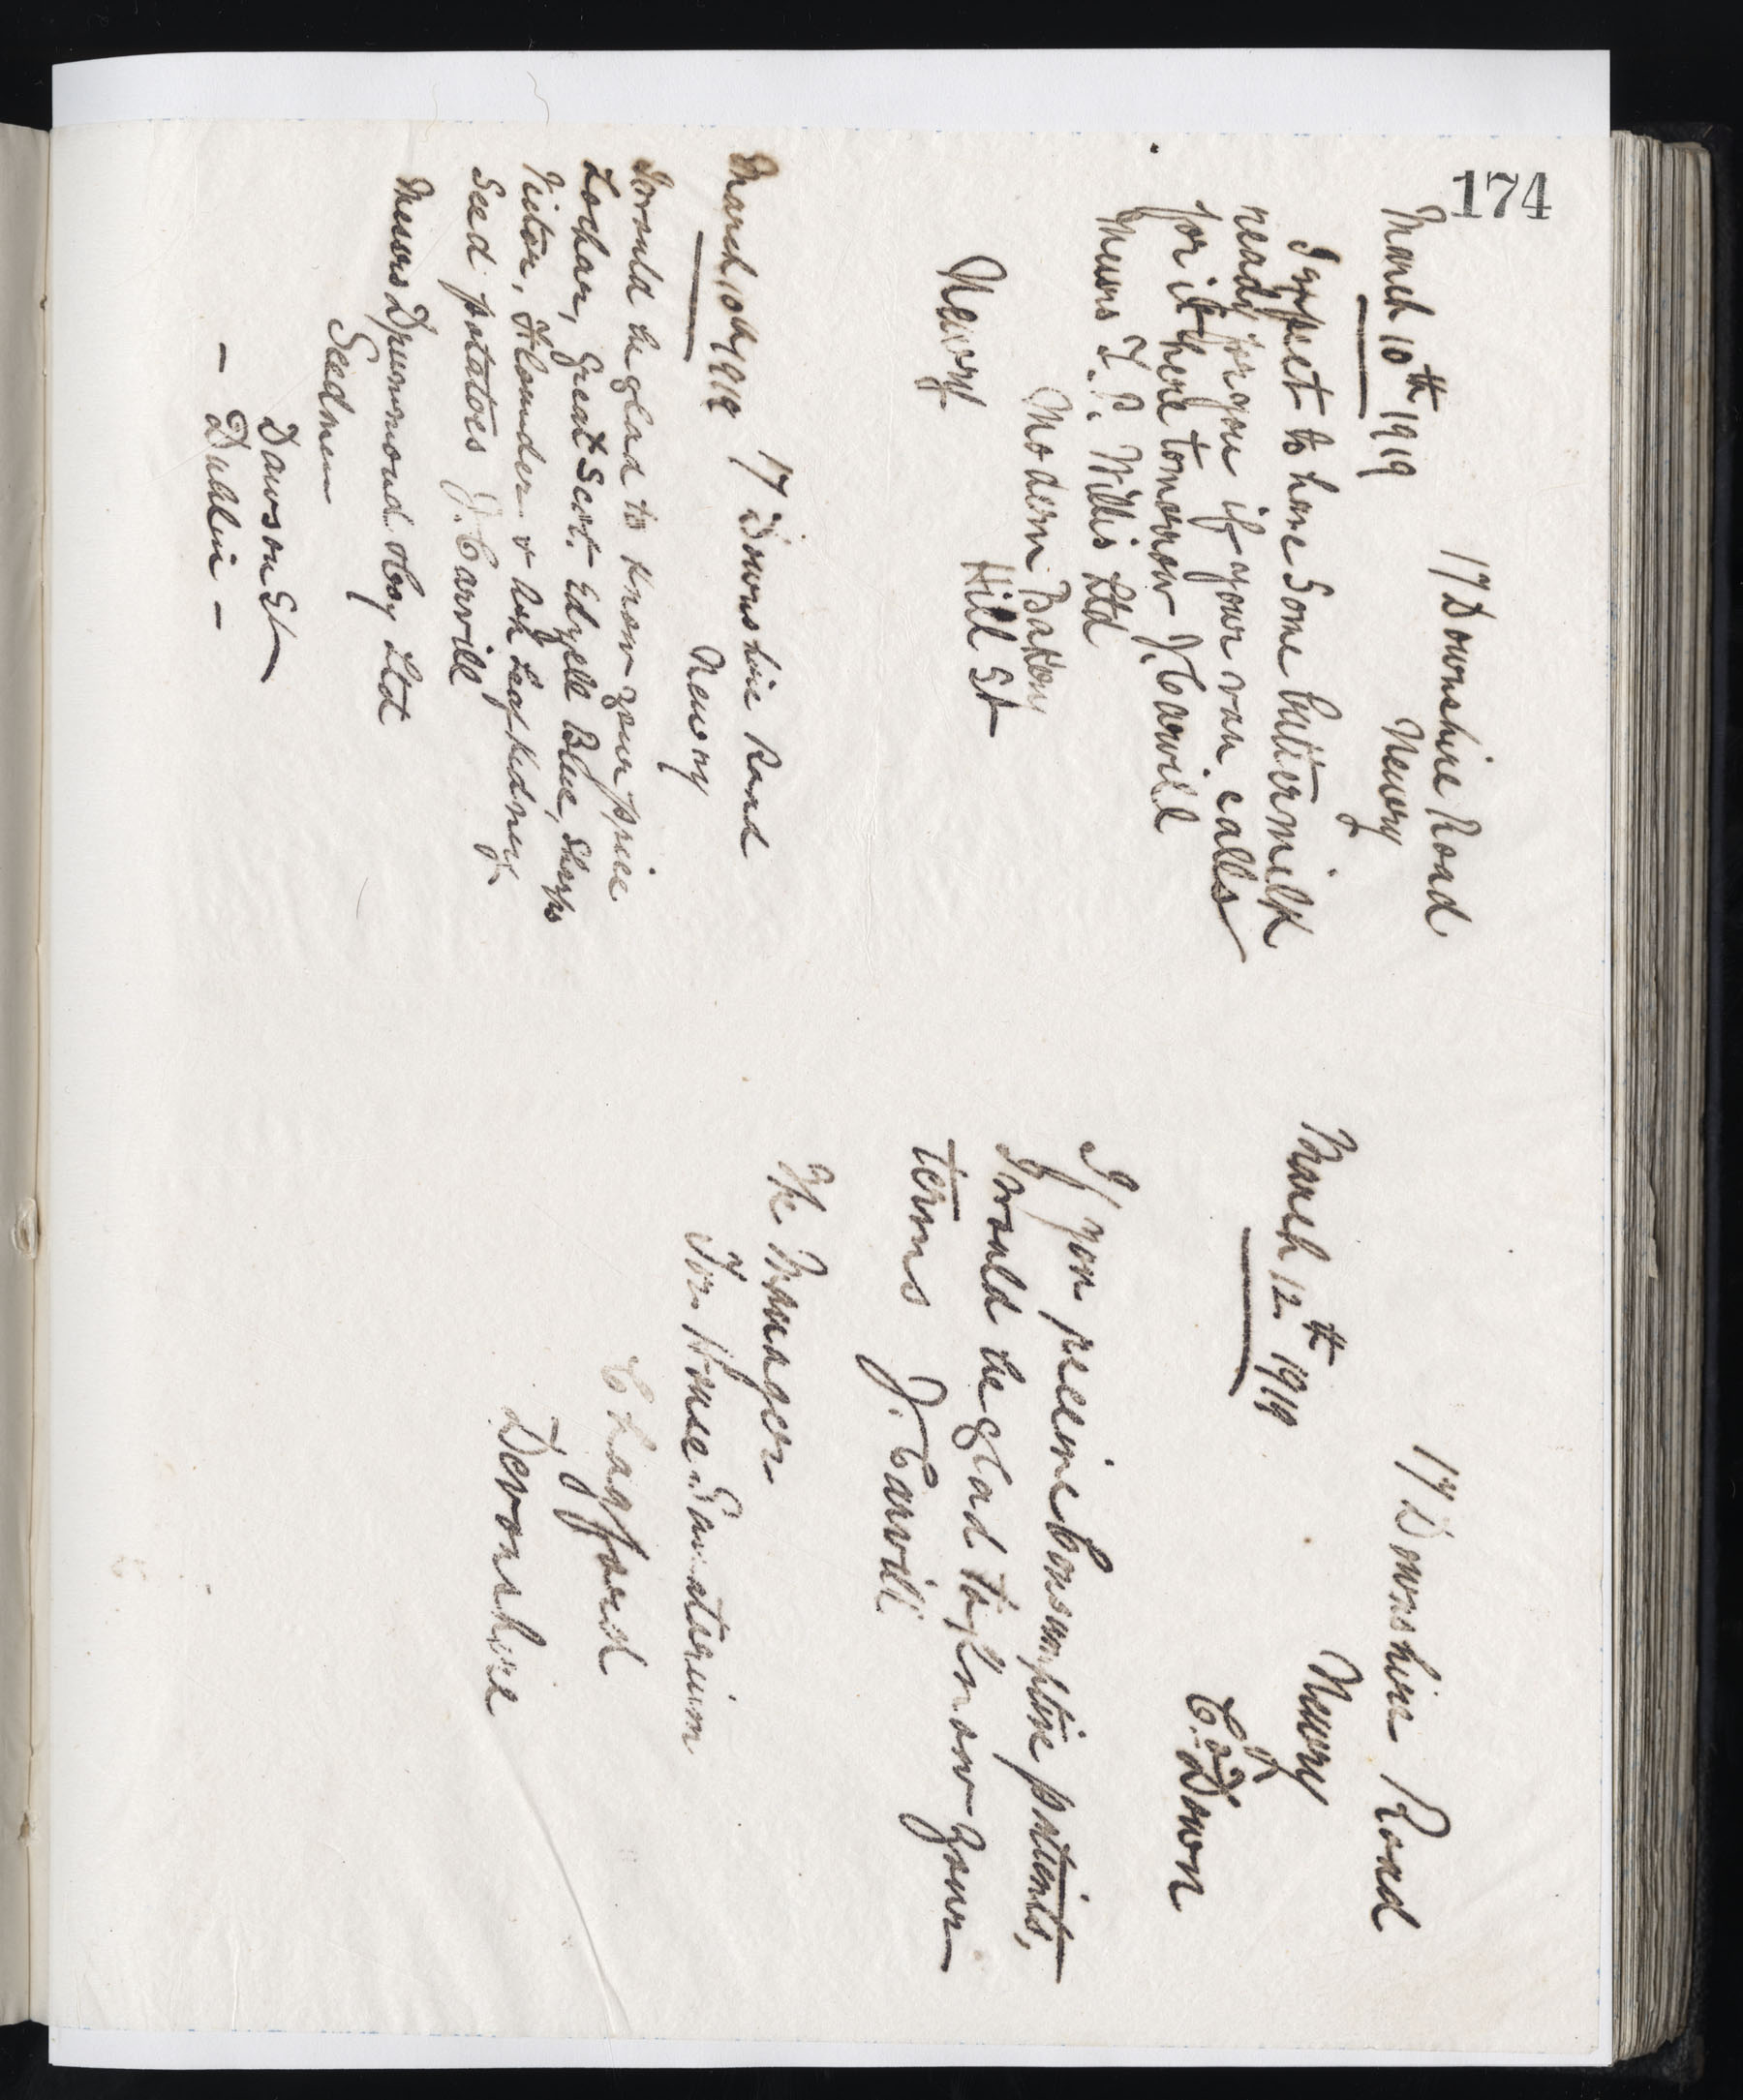 174
17 Downshire Road
Newry
March 10th 1919
I expect to have some buttermilk
ready for you if your van calls
for it here tomorrow J. Carvill
Messrs T. P. Willis Ltd
Modern Bakery
Hill St
Newry
17 Downshire Road
Newry
March 10th 1919
I would be glad to know your price
Lochar, Great Scot. Edzell Blue, Sharps
Victor, Flounder & Ash Leaf Kidney
Seed potatoes J. Carvill
Messrs Drummond & Coy Ltd
Seedmen
Dawson St
- Dublin -
17 Downshire Road
Newry
Co. Down
March 12th 1919
If you receive Consumptive patients,
I would be glad to know your
terms J. Carvill
The Manager
Tor House Sanatorium
Chagford
Devonshire